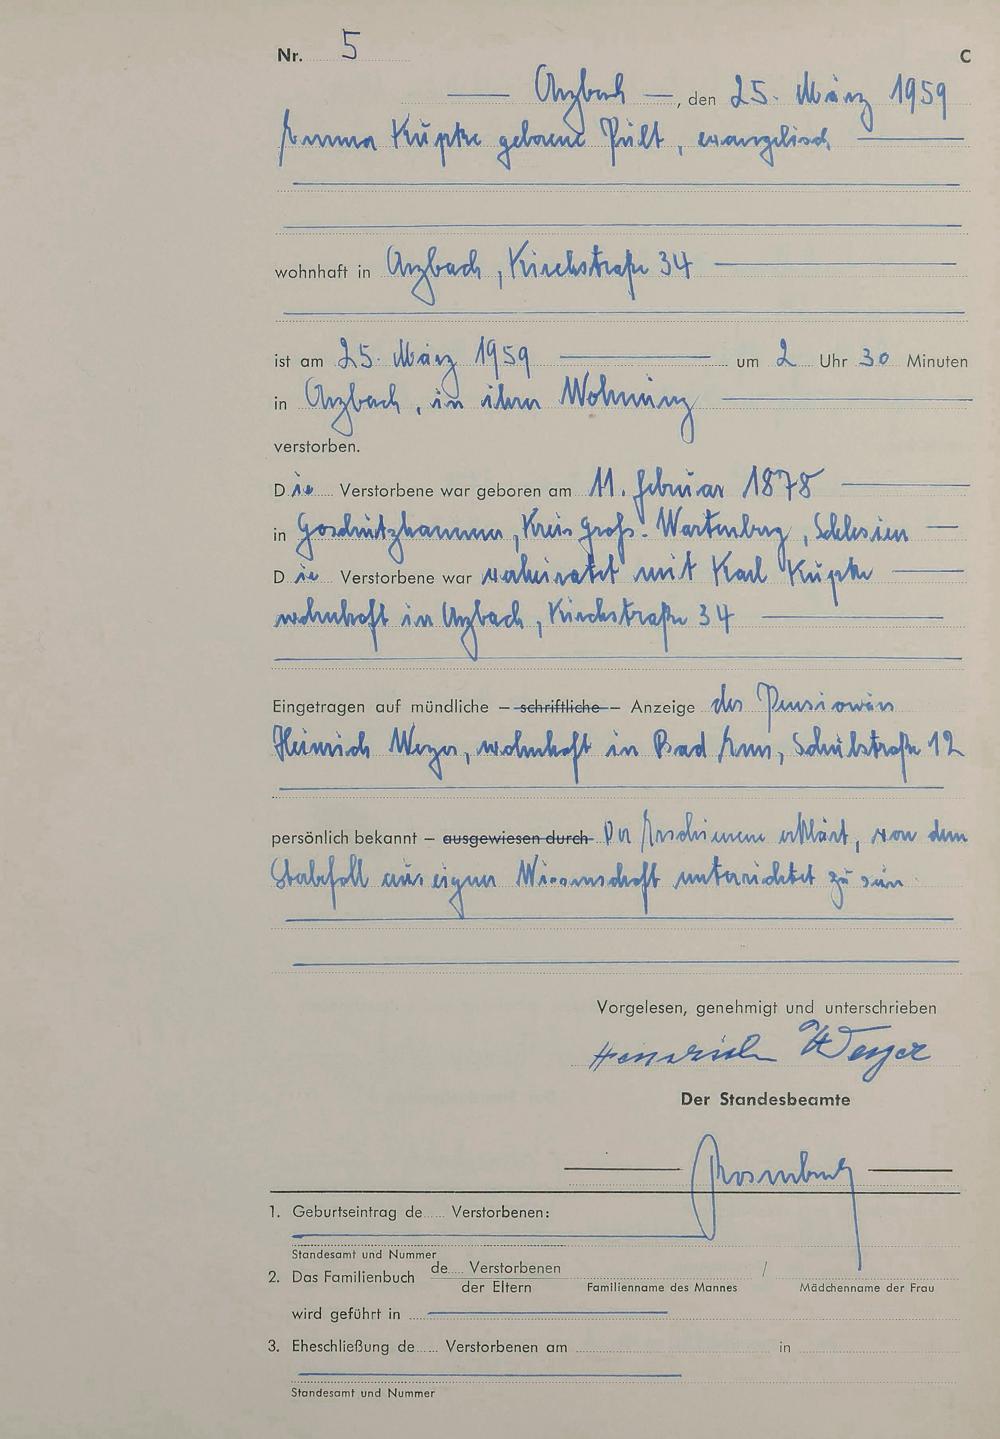 Nr. 5 C
Arzbach, den 25. März 1959
Emma Kupke geborene Pult, evangelisch
wohnhaft in Arzbach, Kirchstraße 34
ist am 25. März 1959 um 2 Uhr 30 Minuten
in Arzbach, in ihrer Wohnung
verstorben.
Die Verstorbene war geboren am 11. Februar 1878
in Goschützhammer, Kreis Groß-Wartenberg, Schlesien
Die Verstorbene war verheiratet mit Karl Kupke
wohnhaft in Arzbach, Kirchstraße 34
Eingetragen auf mündliche – schriftliche – Anzeige des Pensionärs
Heinrich Weyer, wohnhaft in Bad Ems, Schulstraße 12
persönlich bekannt – ausgewiesen durch Der Erschienene erklärt, von dem
Sterbefall aus eigner Wissenschaft unterrichtet zu sein
Vorgelesen, genehmigt und unterschrieben
Heinrich Weyer
Der Standesbeamte
1. Geburtseintrag de Verstorbenen:
Standesamt und Nummer
2. Das Familienbuch de Verstorbenen /
der Eltern Familienname des Mannes Mädchenname der Frau
wird geführt in
3. Eheschließung de Verstorbenen am in
Standesamt und Nummer